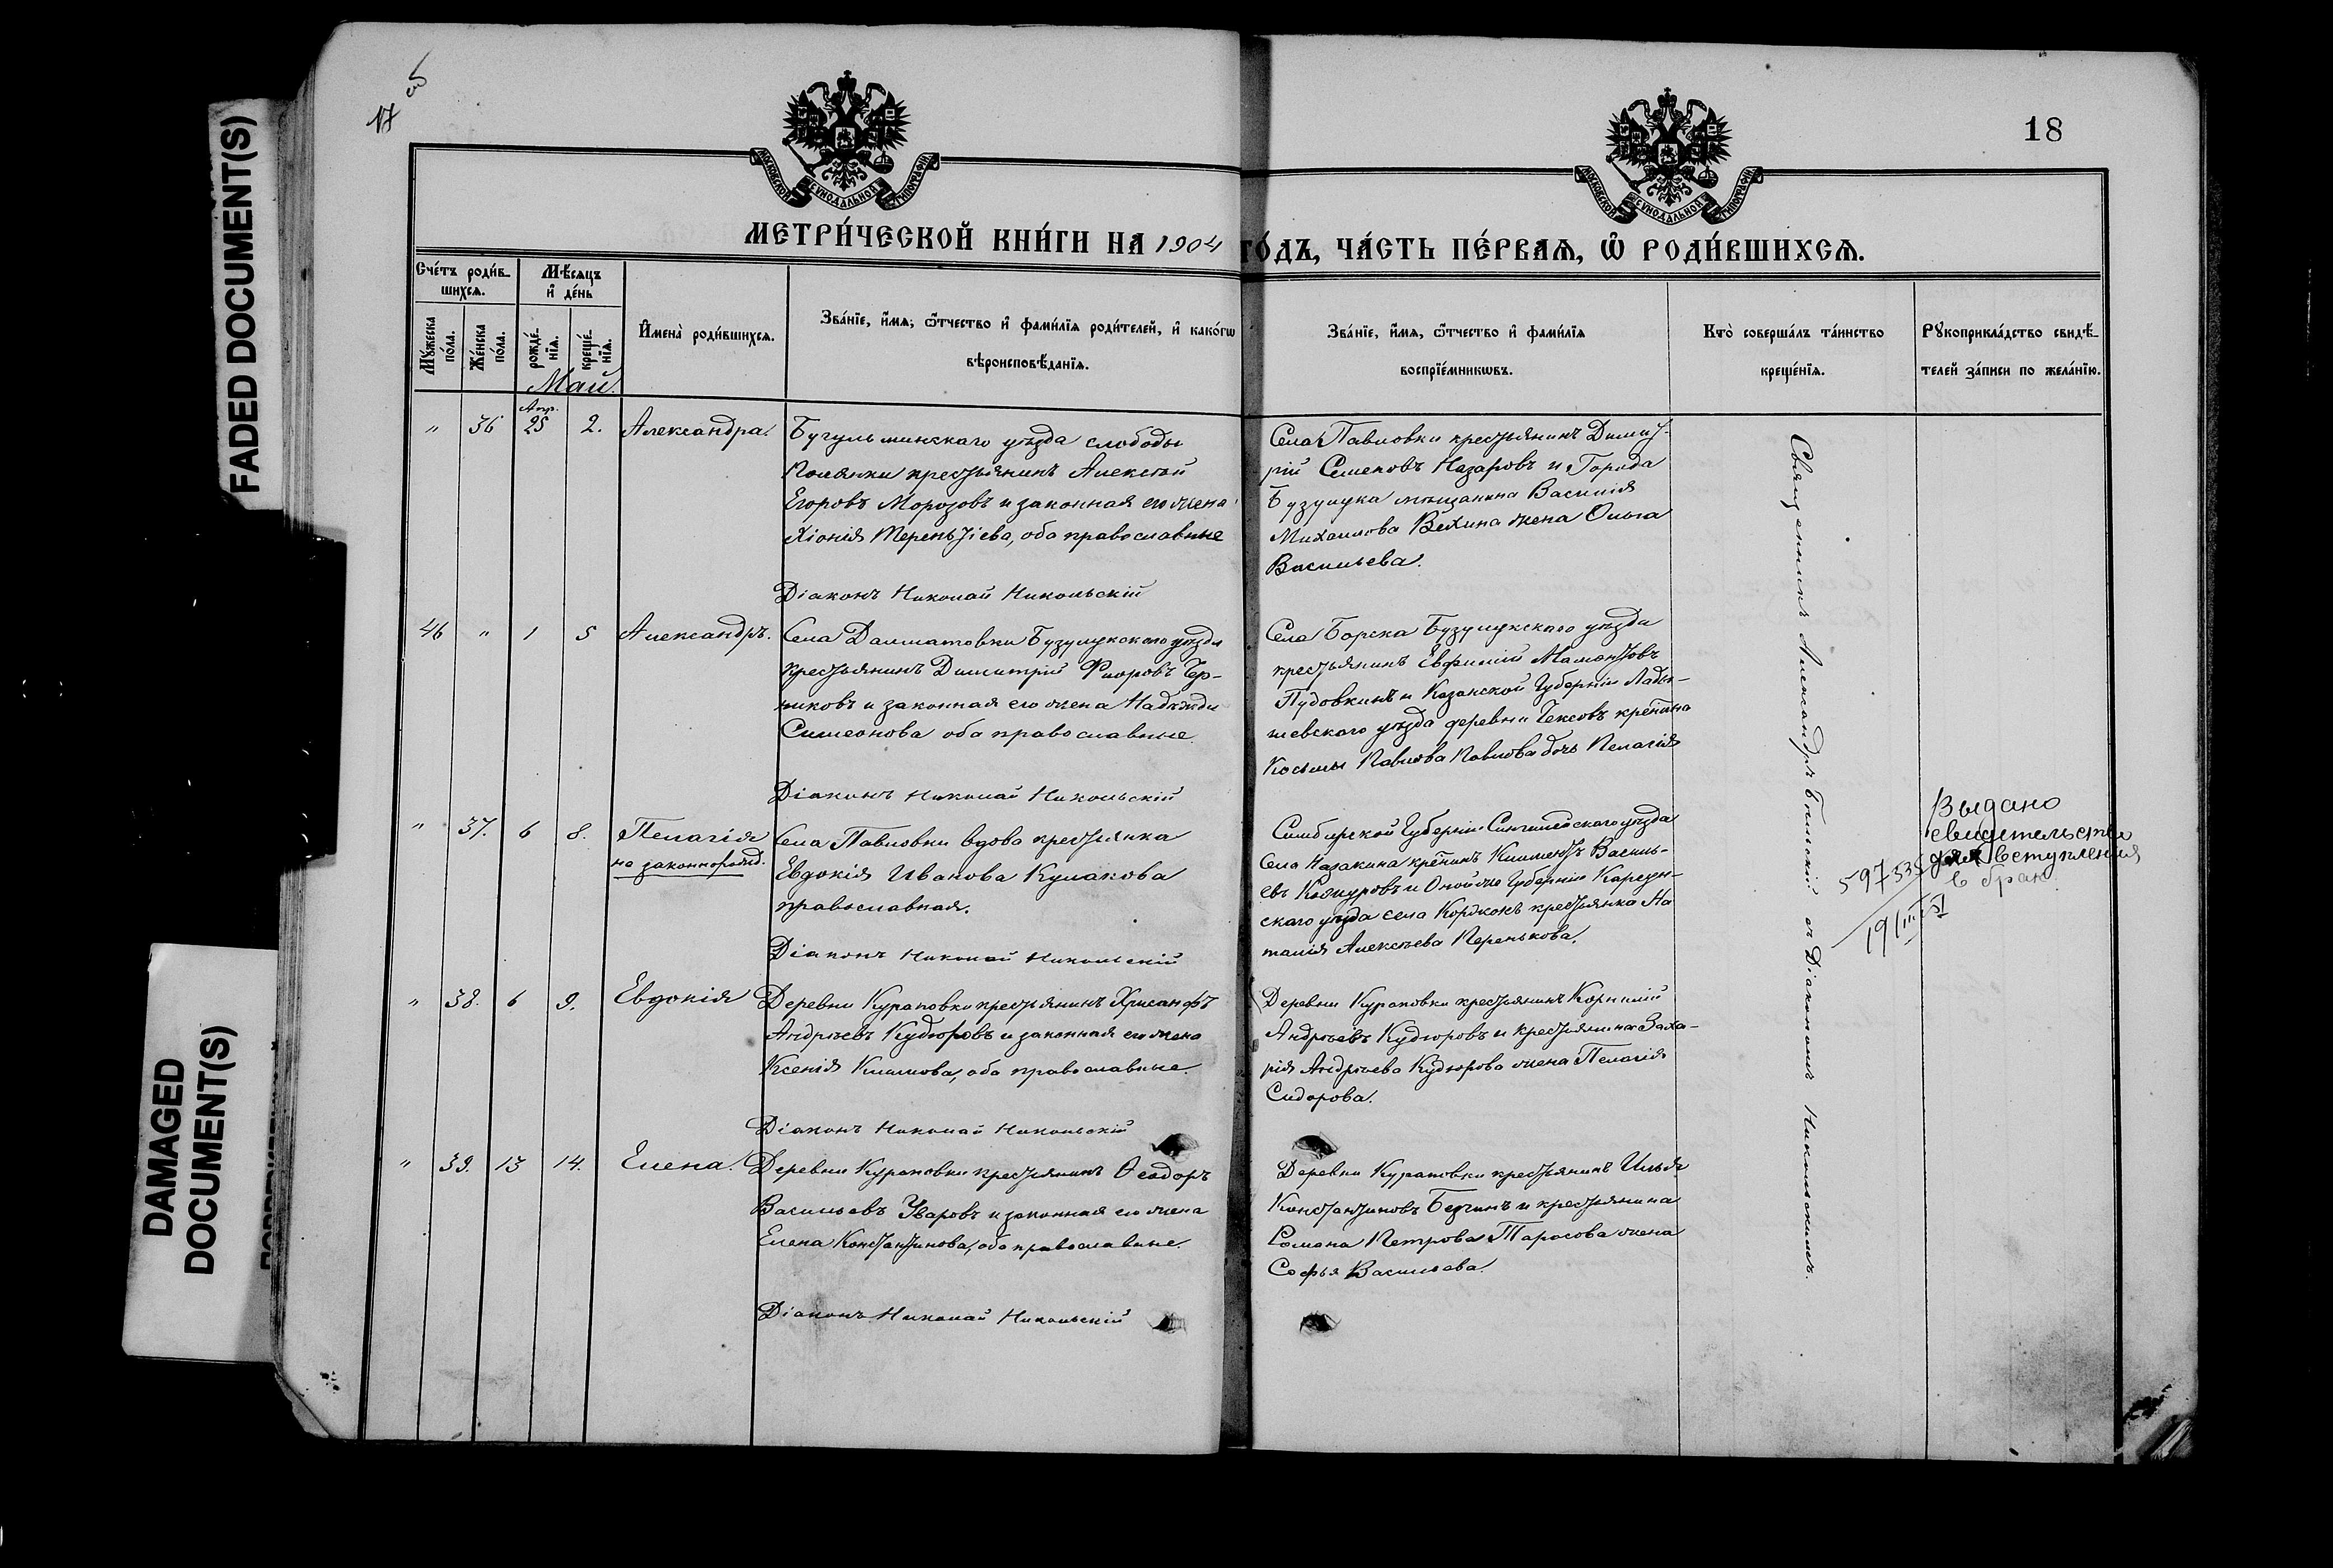 FADED DOCUMENT(S)
DAMAGED
DOCUMENT(S)
17 об
18
МОСКОВСКОЙ СѴНОДАЛЬНОЙ ТИПОГРАФІИ
МОСКОВСКОЙ СѴНОДАЛЬНОЙ ТИПОГРАФІИ
МЕТРИ́ЧЕСКОЙ КНИ́ГИ НА 1904 ГО́ДЪ, ЧА́СТЬ ПЕ́РВАЯ, Ѡ҆ РОДИ́ВШИХСЯ.
Сче́тъ роди́в-
шихся.
Мꙋ́жеска
по́ла.
Же́нска
по́ла.
Мѣ́сяцъ
и҆ де́нь
рожде́-
нїя.
креще́-
нїя.
И҆мена̀ роди́вшихся.
Зва́нїе, и҆́мя, ѻ҆́тчество и҆ фами́лїя роди́телей, и҆ како́гѡ
вѣроисповѣ́данїя.
Зва́нїе, и҆́мя, ѻ҆́тчество и҆ фами́лїя
воспрїе́мникѡвъ.
Кто̀ соверша́лъ та́инство
креще́нїя.
Рꙋкоприкла́дство свидѣ́-
телей за́писи по жела́нїю.
Май.
" 36 Апр. 25 2. Александра.
Бугульминскаго уѣзда слободы
Полянки крестьянинъ Алексѣй
Егоровъ Морозовъ и законная его жена
Хіонія Терентіева, оба православные
Діаконъ Николай Никольскій
Села Павловки крестьянинъ Димит-
рій Семеновъ Назаровъ и Города
Бузулука мѣщанина Василія
Михаилова Вехина жена Ольга
Васильева.
46 " 1 5 Александръ.
Села Далматовки Бузулукскаго уѣзда
крестьянинъ Димитрій Флоровъ Чер-
никовъ и законная его жена Надежда
Симеонова оба православные
Діаконъ Николай Никольскій
Села Борска Бузулукскаго уѣзда
крестьянинъ Евфимій Мамонтовъ
Пудовкинъ и Казанской Губерніи Лады-
шевскаго уѣзда деревни крест-на
Косьмы Павлова Павлова дочь Пелагія
" 37. 6 8. Пелагія
не законнорожд.
Села Павловки вдова крестьянка
Евдокія Иванова Кулакова
православная.
Діаконъ Николай Никольскій
Симбирской Губерніи Сингилейскаго уѣзда
Села Назакина кре-нинъ Климентъ Василь-
евъ и Оной же Губерніи Карсун-
скаго уѣзда села крестьянка На
талія Алексѣева Перенькова.
" 38. 6 9. Евдокія
Деревни Курановки крестьянинъ Хрисанфъ
Андреевъ Кудюровъ и законная его жена
Ксенія Климова, оба православные.
Діаконъ Николай Никольскій
Деревни Курановки крестьянинъ Корнилій
Андреевъ Кудюровъ и крестьянина Заха-
рія Андреева Кудюрова жена Пелагія
Сидорова.
" 39. 13 14. Елена.
Деревни Курановки крестьянинъ Ѳеодоръ
Васильевъ Уваровъ и законная его жена
Елена Константинова, оба православные.
Діаконъ Николай Никольскій
Деревни Курановки крестьянинъ Илья
Константиновъ и крестьянина
Романа Петрова Тарасова жена
Софья Васильева.
Священникъ Александръ съ Діакономъ Никольскимъ.
Выдано
свидетельство
для вступления
в брак
597535
19/III